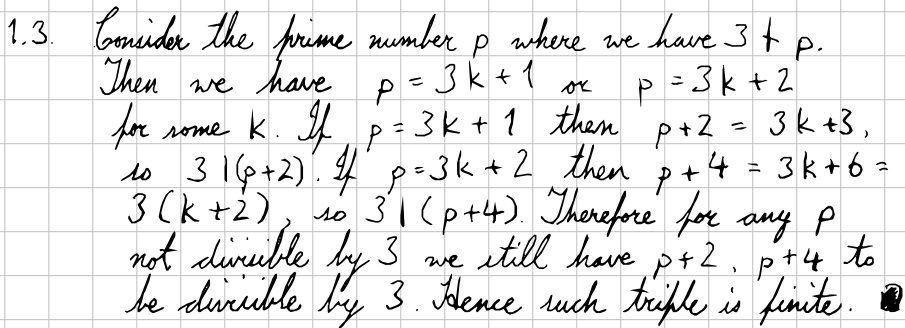 1.3. Consider the prime number p where we have 3 ∤ p.
Then we have p = 3k + 1 or p = 3k + 2
for some k. If p = 3k + 1 then p+2 = 3k+3,
so 3 | (p+2). If p = 3k + 2 then p + 4 = 3k + 6 =
3(k+2), so 3 | (p+4). Therefore for any p
not divisible by 3 we still have p+2, p+4 to
be divisible by 3. Hence such triple is finite.